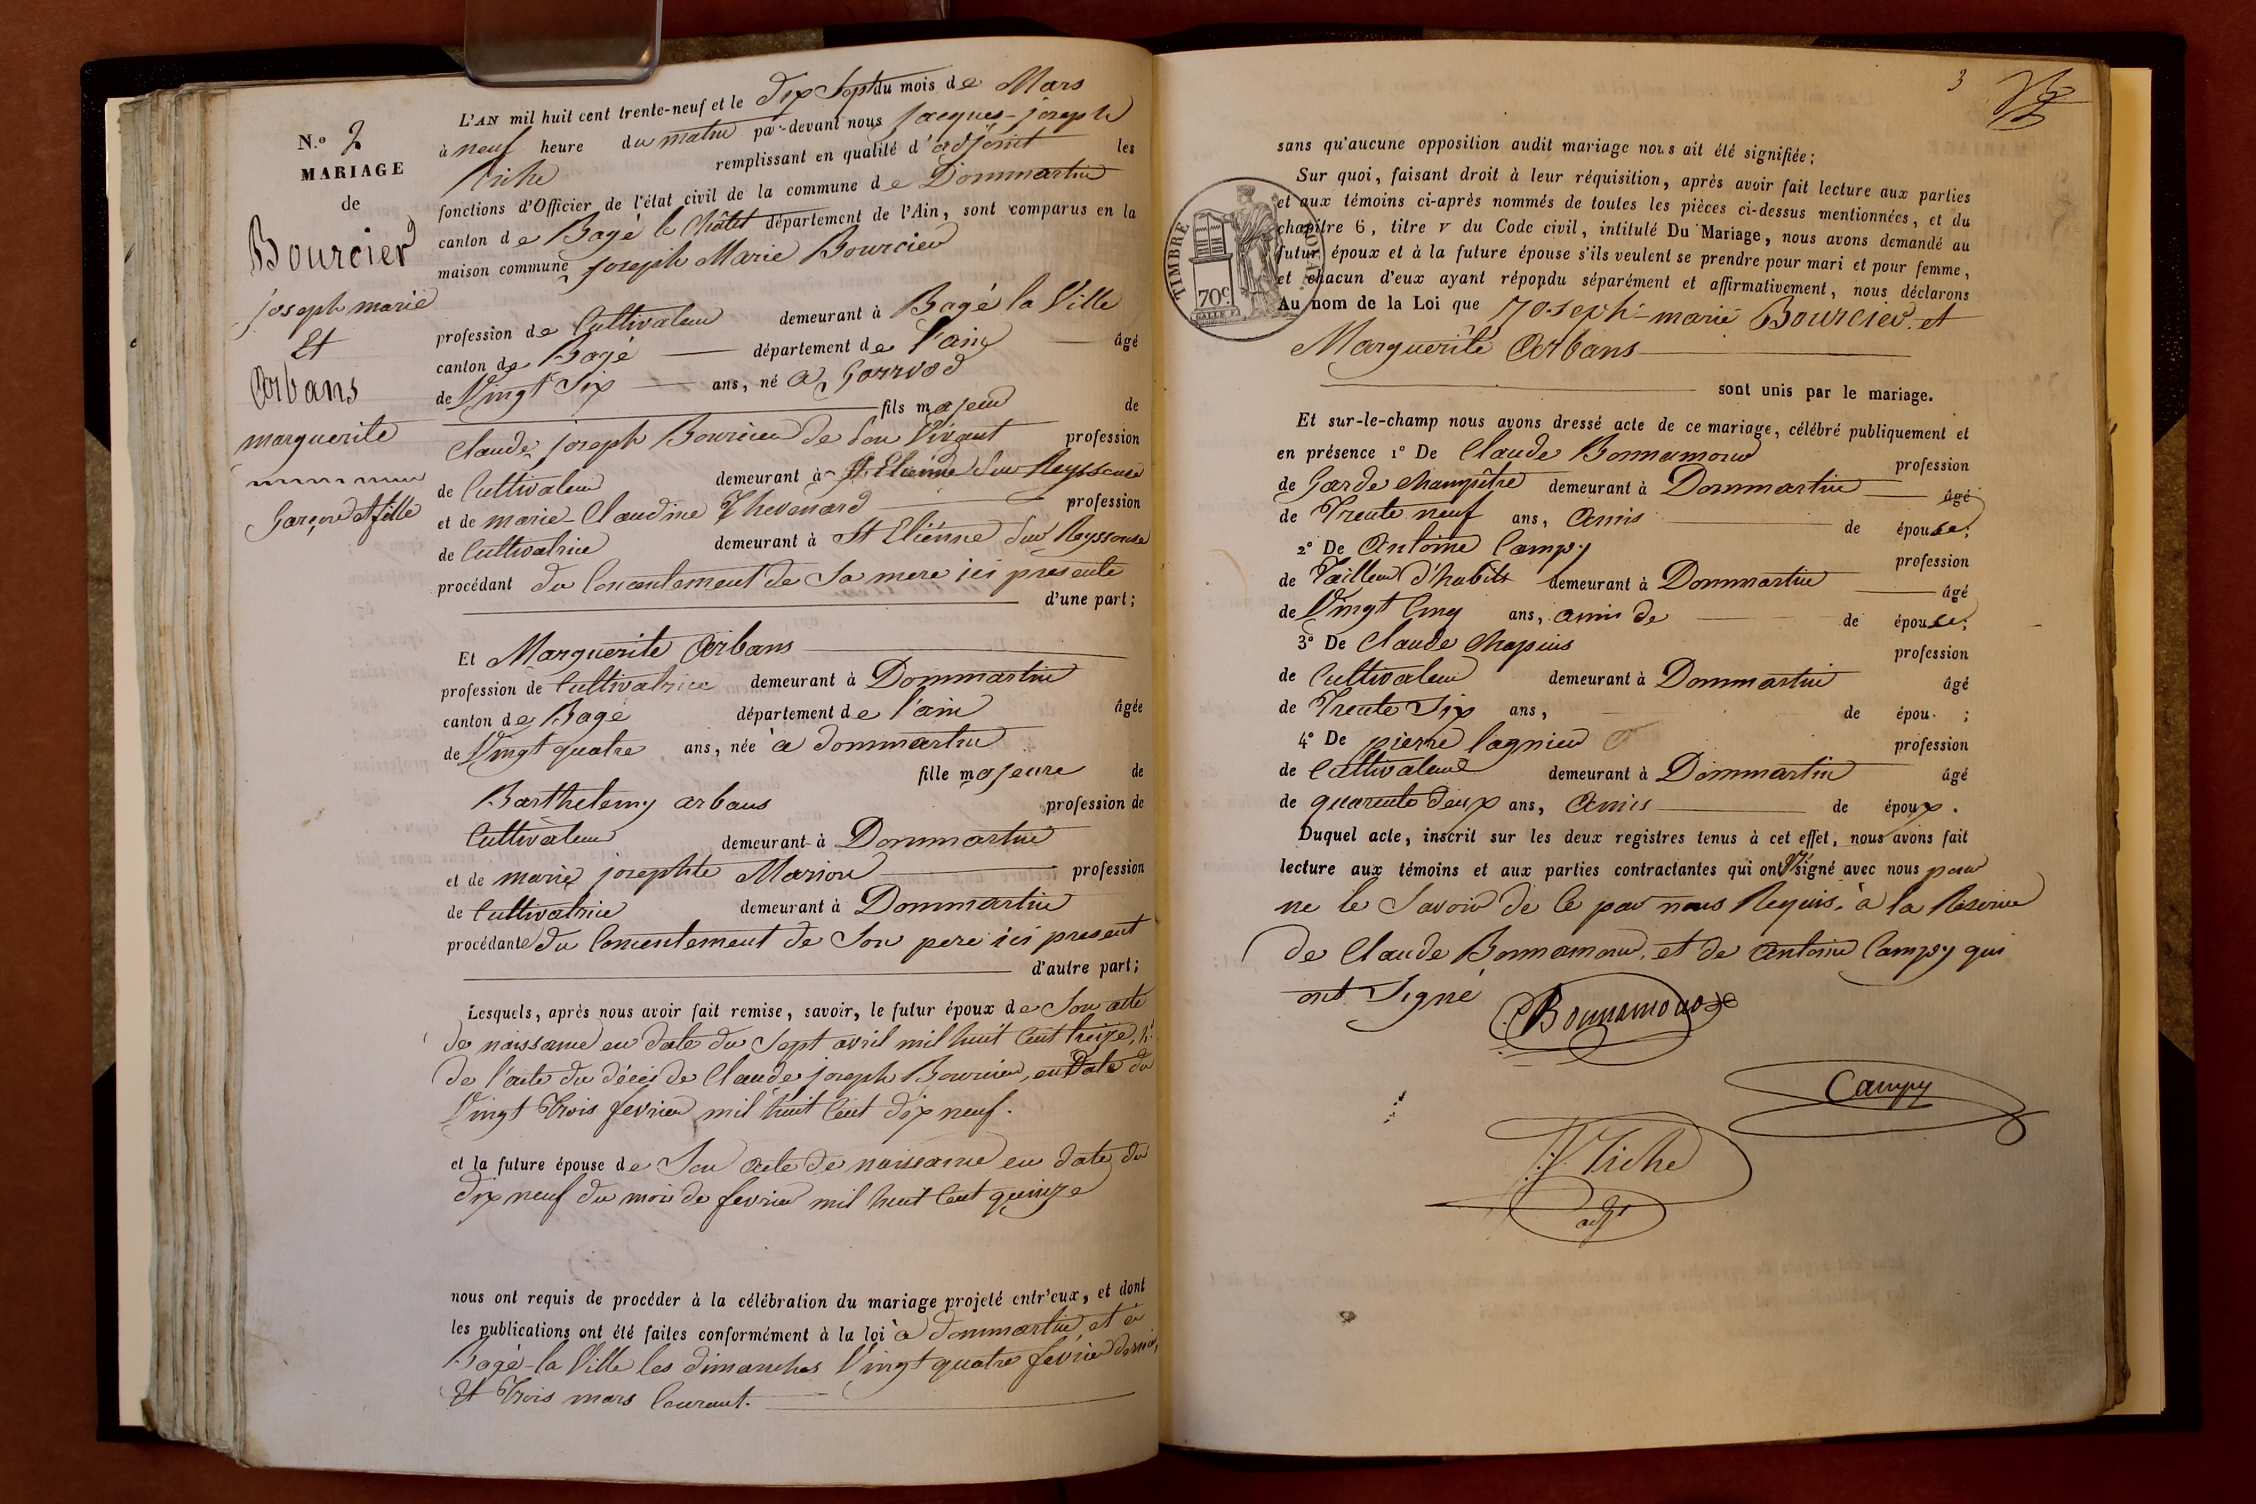 N.o 2
MARIAGE
de
Bourcier
joseph marie
Et
Arbans
marguerite
Garçon et fille
L'AN mil huit cent trente-neuf et le dix Sept du mois de Mars
à neuf heure du matin par-devant nous Jacques-joseph
Riche remplissant en qualité d'adjoint les
fonctions d'Officier de l'état civil de la commune de Dommartin
canton de Bagé le Châtel département de l'Ain, sont comparus en la
maison commune joseph Marie Bourcier
profession de Cultivateur demeurant à Bagé la Ville
canton de Bagé département de l'ain âgé
de Vingt Six ans, né a Gorrvod
fils majeur de
Claude joseph Bourcier de Son Vivant profession
de Cultivateur demeurant à St Etienne Sur Reyssouse
et de marie-Claudine Thevenard profession
de Cultivatrice demeurant à St Etiénne Sur Reyssouse
procédant du Concentement de Sa mere ici présente
d'une part;
Et Marguerite Arbans
profession de Cultivatrice demeurant à Dommartin
canton de Bagé département de l'ain âgée
de Vingt quatre ans, née à dommartin
fille majeure de
Barthelemy arbans profession de
Cultivateur demeurant à Dommartin
et de marie josephte Marion profession
de Cultivatrice demeurant à Dommartin
procédante du Consentement de Son pere ici present
d'autre part;
Lesquels, après nous avoir fait remise, savoir, le futur époux de Son acte
de naissance en date du Sept avril mil huit Cent treize,
De l'acte du décès de Claude joseph Bourcier, en Date du
Vingt Trois fevrier mil huit Cent dix neuf.
et la future épouse de Son acte de naissance en date du
dix neuf du mois de fevrier mil huit Cent quinze
nous ont requis de procéder à la célébration du mariage projeté entr'eux, et dont
les publications ont été faites conformément à la loi à Dommartin et à
Bagé-la Ville les dimanches Vingt quatre fevrier dernier,
Et Trois mars Courant.
3
sans qu'aucune opposition audit mariage nous ait été signifiée;
Sur quoi, faisant droit à leur réquisition, après avoir fait lecture aux parties
et aux témoins ci-après nommés de toutes les pièces ci-dessus mentionnées, et du
chapitre 6, titre v du Code civil, intitulé Du Mariage, nous avons demandé au
futur époux et à la future épouse s'ils veulent se prendre pour mari et pour femme,
et chacun d'eux ayant répondu séparément et affirmativement, nous déclarons
Au nom de la Loi que Joseph-marie Bourcier et
Marguerite Arbans
sont unis par le mariage.
TIMBRE ROYAL
70c
GALLE F.
Et sur-le-champ nous avons dressé acte de ce mariage, célébré publiquement et
en présence 1° De Claude Bonnamour profession
de Garde champêtre demeurant à Dommartin âgé
de Trente neuf ans, Amis de épouse;
2° De Antoine Campy profession
de Tailleur d'habits demeurant à Dommartin âgé
de Vingt Cinq ans, amis de de épouse;
3° De Claude Chapuis profession
de Cultivateur demeurant à Dommartin âgé
de Trente Six ans, de épou ;
4° De pierre Cagnieu profession
de Cultivateur demeurant à Dommartin âgé
de quarente deux ans, Amis de époux.
Duquel acte, inscrit sur les deux registres tenus à cet effet, nous avons fait
lecture aux témoins et aux parties contractantes qui ont signé avec nous pour
ne le Savoir de Ce par nous Requis, à la Reserve
de Claude Bonnamour, et de Antoine Campy qui
ont Signé
Bonnamour
Campy
J. J. Riche
adjt